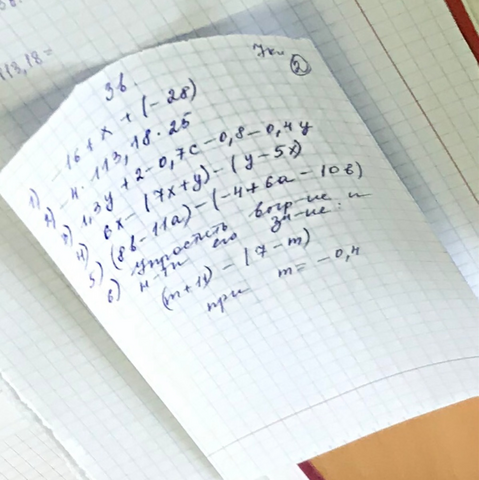 113,18=
7кл
②
Зв.
1) -16+x+(-28)
2) -4·113,18·25
3) 1,3y+2-0,7c-0,8-0,4y
4) 6x-(7x+y)-(y-5x)
5) (8b-11a)-(-4+6a-10b)
6) Упростить выр-ие и
н-ти его зн-ие:
(m+11)-(7-m)
при m=-0,4